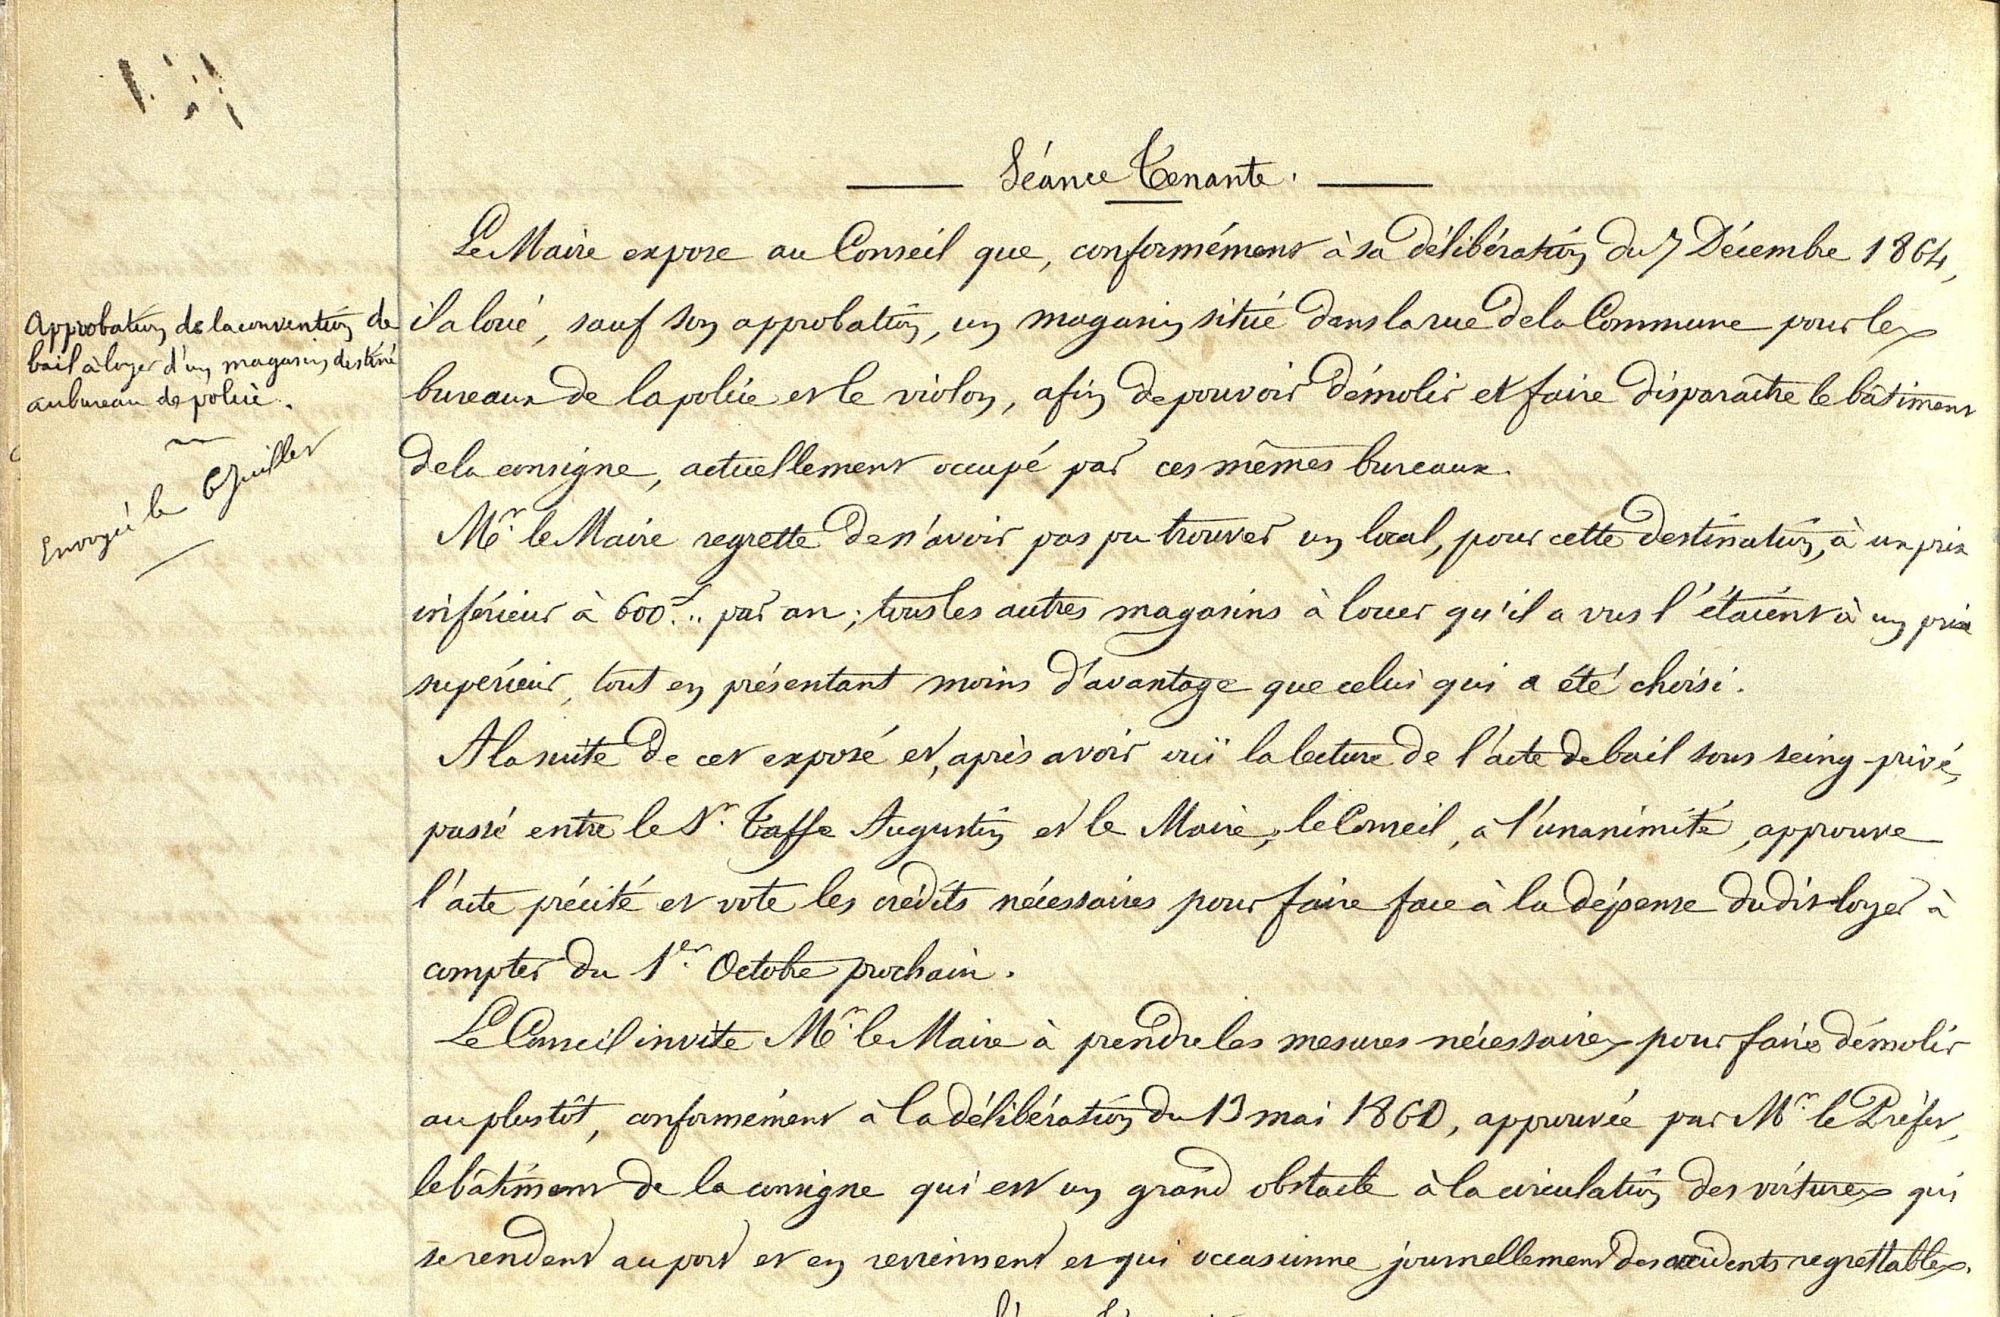 Séance Tenante.
Le Maire expose au Conseil que, conformément à sa délibération du 7 Décembre 1864,
il a loué, sauf son approbation, un magasin situé dans la rue de la Commune pour les
bureaux de la police et le violon, afin de pouvoir démolir et faire disparaître le bâtiment
de la consigne, actuellement occupé par ces mêmes bureaux.
Mr. le Maire regrette de n'avoir pas pu trouver un local, pour cette destination, à un prix
inférieur à 600f.. par an; tous les autres magasins à louer qu'il a vus l'étaient à un prix
supérieur, tout en présentant moins d'avantage que celui qui a été choisi.
A la suite de cet exposé et, après avoir ouï la lecture de l'acte de bail sous seing-privé,
passé entre le Sr. Taffe Augustin et le Maire, le Conseil, à l'unanimité, approuve
l'acte précité et vote les crédits nécessaires pour faire face à la dépense dudit loyer à
compter du 1er. Octobre prochain.
Le Conseil invite Mr. le Maire à prendre les mesures nécessaires pour faire démolir
au plustôt, conformément à la délibération du 13 mai 1860, approuvée par Mr. le Préfet,
le bâtiment de la consigne qui est un grand obstacle à la circulation des voitures qui
se rendent au port et en reviennent et qui occasionne journellement des accidents regrettables.
Approbation de la convention de
bail à loyer d'un magasin destiné
au bureau de police.
Envoyé le 6 Juillet